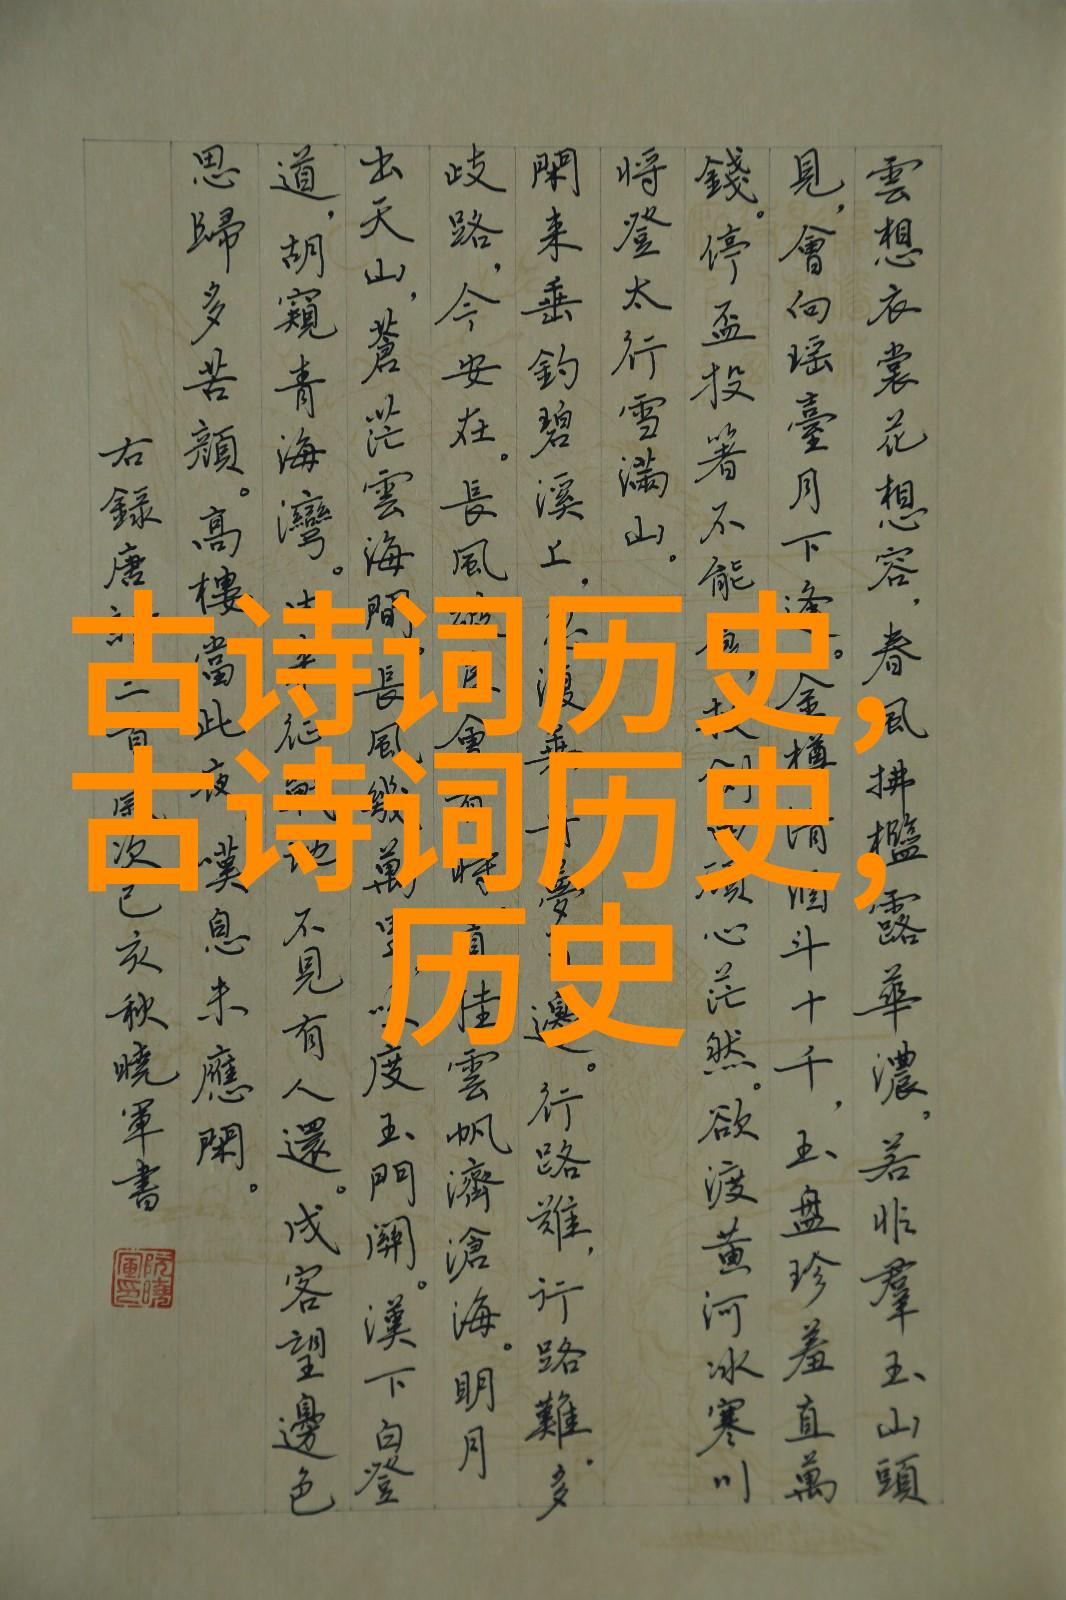 古诗词历史,
古诗词历史,
历史
雲想衣裳花想容，春風拂檻露華濃。若非羣玉山頭
見，會向瑶臺月下逢。金樽清酒斗十千，玉盤珍羞直萬
錢。停盃投箸不能食，拔劍四顧心茫然。欲渡黄河冰寒川
將登太行雪滿山。
閑来垂釣碧溪上，復乘舟夢邊。行路難，行路難。多
歧路，今安在。長風破浪會有時，直挂雲帆濟滄海。明月
出天山，蒼茫雲海間。長風幾萬里，吹度玉門關。漢下白登
道，胡窺青海灣。由来征戰地不見有人還。戍客望邊色
思歸多苦顔。高樓當此夜，嘆息未應閑。
右錄唐詩首歲次己亥秋曉軍書
阮曉軍印